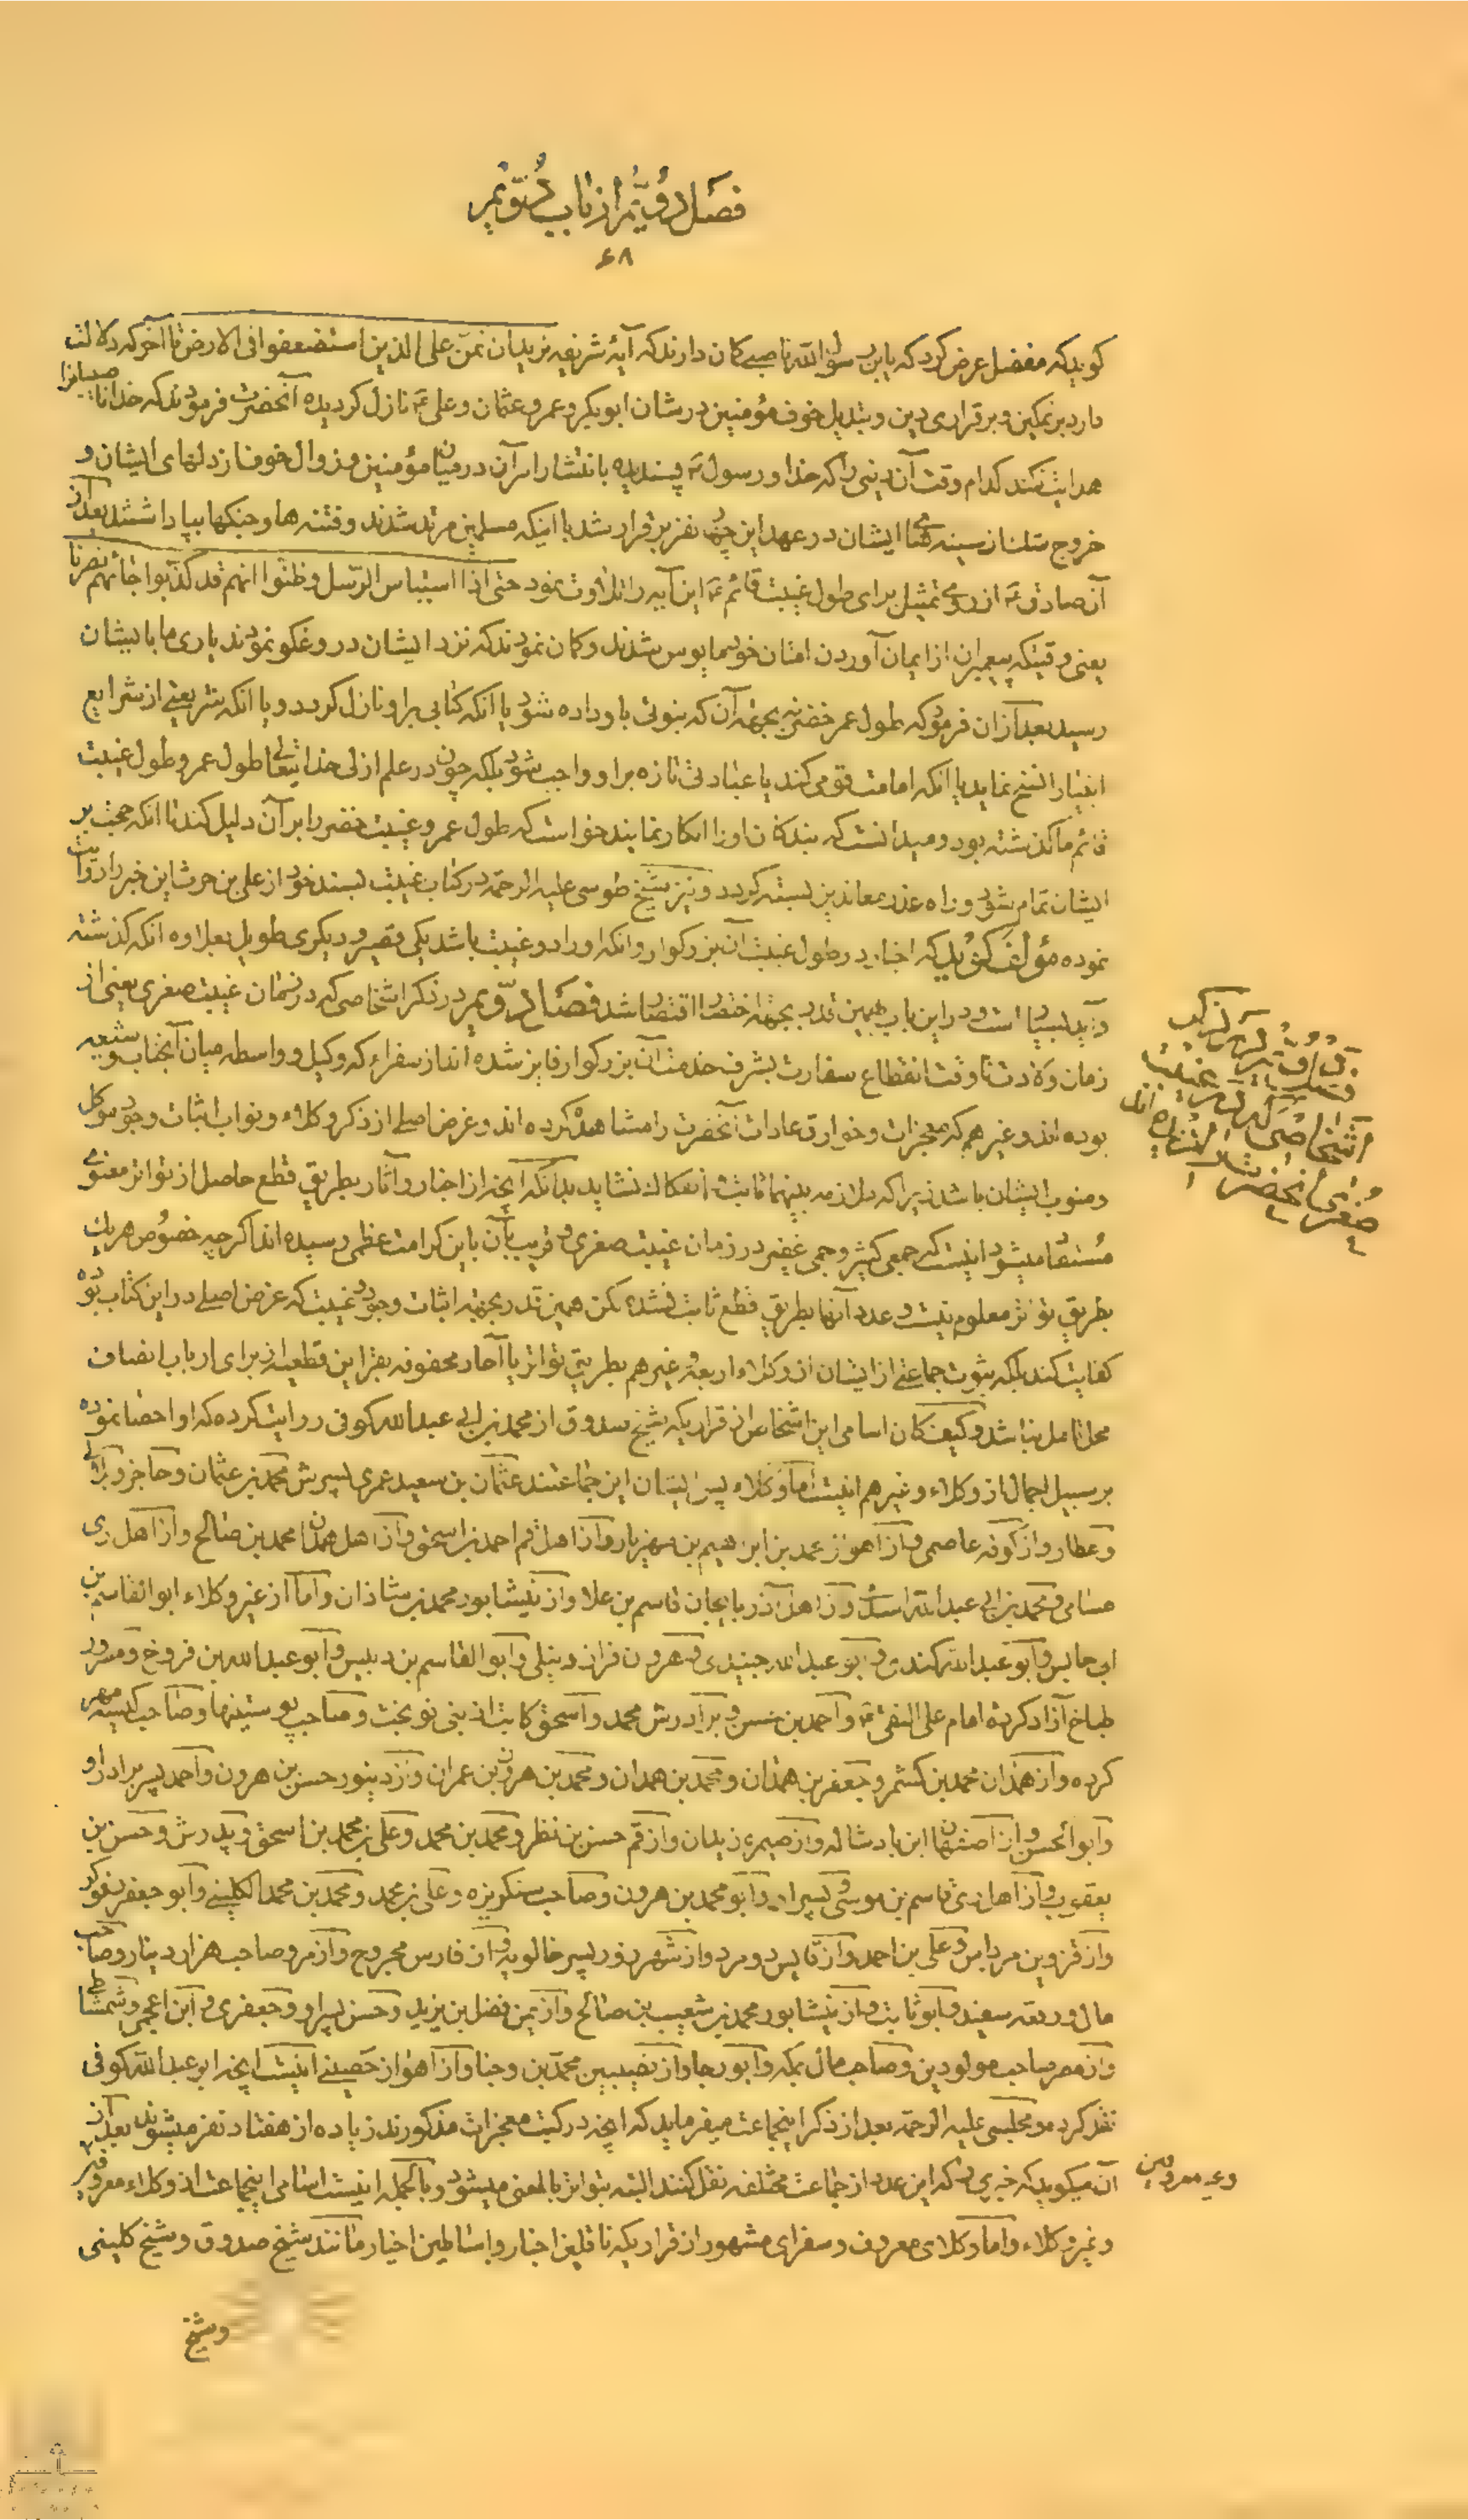 فصل دویّم از باب دُوّیم
۶۸
کوید که مفضل عرض کرد که یابن رسول الله ناصبی کمان دارند که آیهٔ شریفه نرید ان نمنّ علی الذین استضعفوا فی الارض تا آخر که دلالت
دارد بر تمکین و برقراری دین و تبدیل خوف مؤمنین در شان ابوبکر و عمر و عثمان و علی ع نازل کردیده آنحضرت فرمودند که خدا ناصبیانرا
هدایت نکند کدام وقت آن دینی را که خدا و رسول پسندیده بانتشار امر آن در میان مؤمنین و زوال خوف از دلهای ایشان و
خروج شک از سینه های ایشان در عهد این چهار نفر برقرار شد با اینکه مسلمین مرتد شدند و فتنه ها و جنکها بپا داشتند بعد از
آن صادق ع از روی تمثیل برای طول غیبت قائم ع این آیه را تلاوت نمود حتی اذا استیاس الرّسل و ظنّوا انهم قد کذبوا جائهم نصرنا
یعنی وقتیکه پیغمبران از ایمان آوردن امتان خود مایوس شدند و کمان نمودند که نزد ایشان دروغکو نمودند یاری ما بایشان
رسید بعد از ان فرمود که طول عمر خضر نه بجهة آن که نبوتی باو داده شود یا انکه کتابی بر او نازل کردد و یا انکه شریعتی از شرایع
انبیا را نسخ نماید یا انکه امامت قومی کند یا عبادتی تازه بر او واجب شود بلکه چون در علم ازلی خدا یتعالی طول عمر و طول غیبت
قائم ما کذشته بود و میدانست که بندکان اورا انکار نمایند خواست که طول عمر و غیبت خضر را بر آن دلیل کند تا انکه حجت بر
ایشان تمام شود و راه عذر معاندین بسته کردد و نیز شیخ طوسی علیه الرحمة در کتاب غیبت بسند خود از علی بن حرث این خبر را روایت
نموده مؤلف کوید که اخبار در طول غیبت آن بزرکوار و انکه اورا دو غیبت باشد یکی قصیر و دیکری طویل بعلاوه انکه کذشته
و آید بسیار است و در این باب همین قدر بجهة اختصار اقتصار شد فصل دوّیم در ذکر اشخاصی که در زمان غیبت صغری یعنی از
زمان ولادت تا وقت انقطاع سفارت بشرف خدمت آن بزرکوار فایز شده اند از سفراء که وکیل و واسطه میان آنجناب و شیعه
بوده اند و غیرهم که معجزات و خوارق عادات آنحضرت را مشاهده کرده اند و غرض اصلی از ذکر وکلاء و نواب اثبات وجود موکل
و منوب ایشان باشد زیرا که ملازمه بینهما ثابت انفکاک نشاید بدانکه آنچه از اخبار و آثار بطریق قطع حاصل از تواتر معنوی
مستفاد میشود اینست که جمعی کثیر و جمی غفیر در زمان غیبت صغری و قریب بآن باین کرامت عظمی رسیده اند اکرچه خصوص هریک
بطریق تواتر معلوم نیست و عدد آنها بطریق قطع ثابت نشده لکن همین قدر بجهة اثبات وجود و غیبت که غرض اصلی در این کتاب بوده
کفایت کند بلکه ثبوت جماعتی از ایشان از وکلاء اربعه و غیرهم بطریق تواتر یا آحاد محفوفه بقراین قطعیه از برای ارباب انصاف
محل تامل نباشد و کیف کان اسامی این اشخاص از قراریکه شیخ صدوق از محمد بن ابی عبد الله کوفی روایت کرده که او احصا نموده
بر سبیل اجمال از وکلاء و غیرهم اینست اما وکلاء پس ایشان این جماعتند عثمان بن سعید عمری پسرش محمد بن عثمان و حاجز و بلالی
و عطار و از کوفه عاصمی و از اهواز محمد بن ابراهیم بن مهزیار و از اهل قم احمد بن اسحق و از اهل همدان محمد بن صالح و از اهل ری
بسامی و محمد بن ابی عبد الله اسدی و از اهل آذربایجان قاسم بن علا و از نیشابور محمد بن شاذان و اما از غیر وکلاء ابوالقاسم بن
ابی حابس و ابو عبد الله کندی و ابو عبد الله جنیدی و هرون قزاز و نیلی و ابوالقاسم بن دبیس و ابو عبد الله بن فروخ و مسرور
طباخ آزاد کرده امام علی النقی ع و احمد بن حسن و برادرش محمد و اسحق کاتب از بنی نوبخت و صاحب پوستینها و صاحب کیسه مهر
کرده و از همدان محمد بن کشمر و جعفر بن همدان و محمد بن همدان و محمد بن هرون بن عمران و از دینور حسن بن هرون و احمد پسر برادر او
و ابوالحسن و از اصفهان ابن بادشاله و از صیمره زیدان و از قم حسن بن نظر و محمد بن محمد و علی بن محمد بن اسحق و پدرش و حسن بن
یعقوب و از اهل ری قاسم بن موسی و پسر او و ابو محمد بن هرون و صاحب سنکریزه و علی بن محمد و محمد بن محمد الکلینی و ابو جعفر رفوکر
و از قزوین مرداس و علی بن احمد و از قایس دو مرد و از شهرزور پسر خالویه و از فارس مجروح و از مرو صاحب هزار دینار و صاحب
مال و رقعه سفید و ابو ثابت و از نیشابور محمد بن شعیب بن صالح و از یمن فضل بن یزید و حسن پسر او و جعفری و ابن اعجمی و شمشاطی
و از مصر صاحب مولودین و صاحب مال بمکه و ابو رجا و از نصیبین محمد بن وجنا و از اهواز حصینی اینست آنچه ابو عبد الله کوفی
نقل کرده و مجلسی علیه الرحمة بعد از ذکر اینجماعت میفرماید که آنچه در کتب معجزات مذکورند زیاده از هفتاد نفر میشوند بعد از
آن میکوید که خبری را که این عدد از جماعت مختلفه نقل کنند البته بتواتر بالمعنی میشود و بالجمله اینست اسامی اینجماعت از وکلاء معروفین
و غیر وکلاء و اما وکلای معروف و سفرای مشهور از قراریکه ناقلین اخبار و اساطین اخیار مانند شیخ صدوق و شیخ کلینی
وشیخ